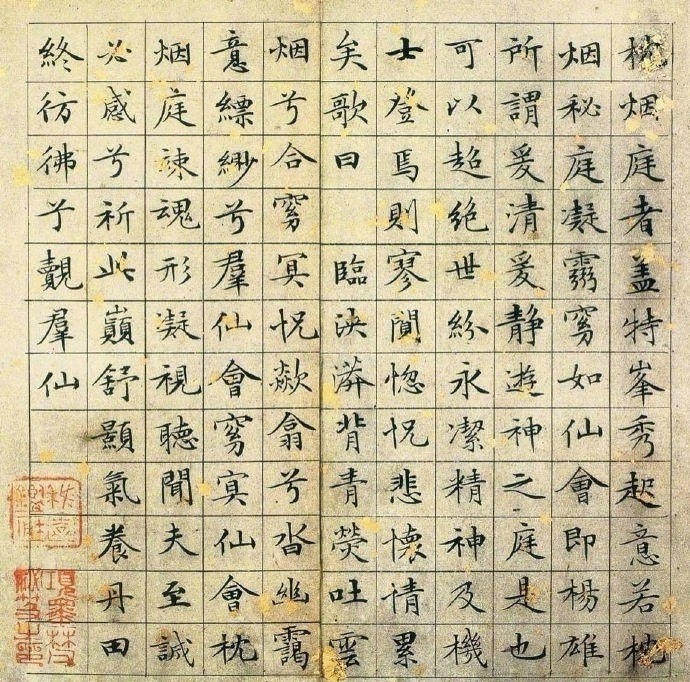 枕烟庭者盖特峯秀起意若枕
烟秘庭凝霛窅如仙會即楊雄
所謂爰清爰静遊神之庭是也
可以超絕世紛永潔精神及機
士登焉則寥閴惚怳悲懷情累
矣歌曰 臨泱漭背青熒吐雲
烟兮合窅冥怳欻翕兮沓幽靄
意縹緲兮羣仙會窅冥仙會枕
烟庭竦魂形凝視聽聞夫至誠
必感兮祈此巔舒顥氣養丹田
終彷彿兮覿羣仙